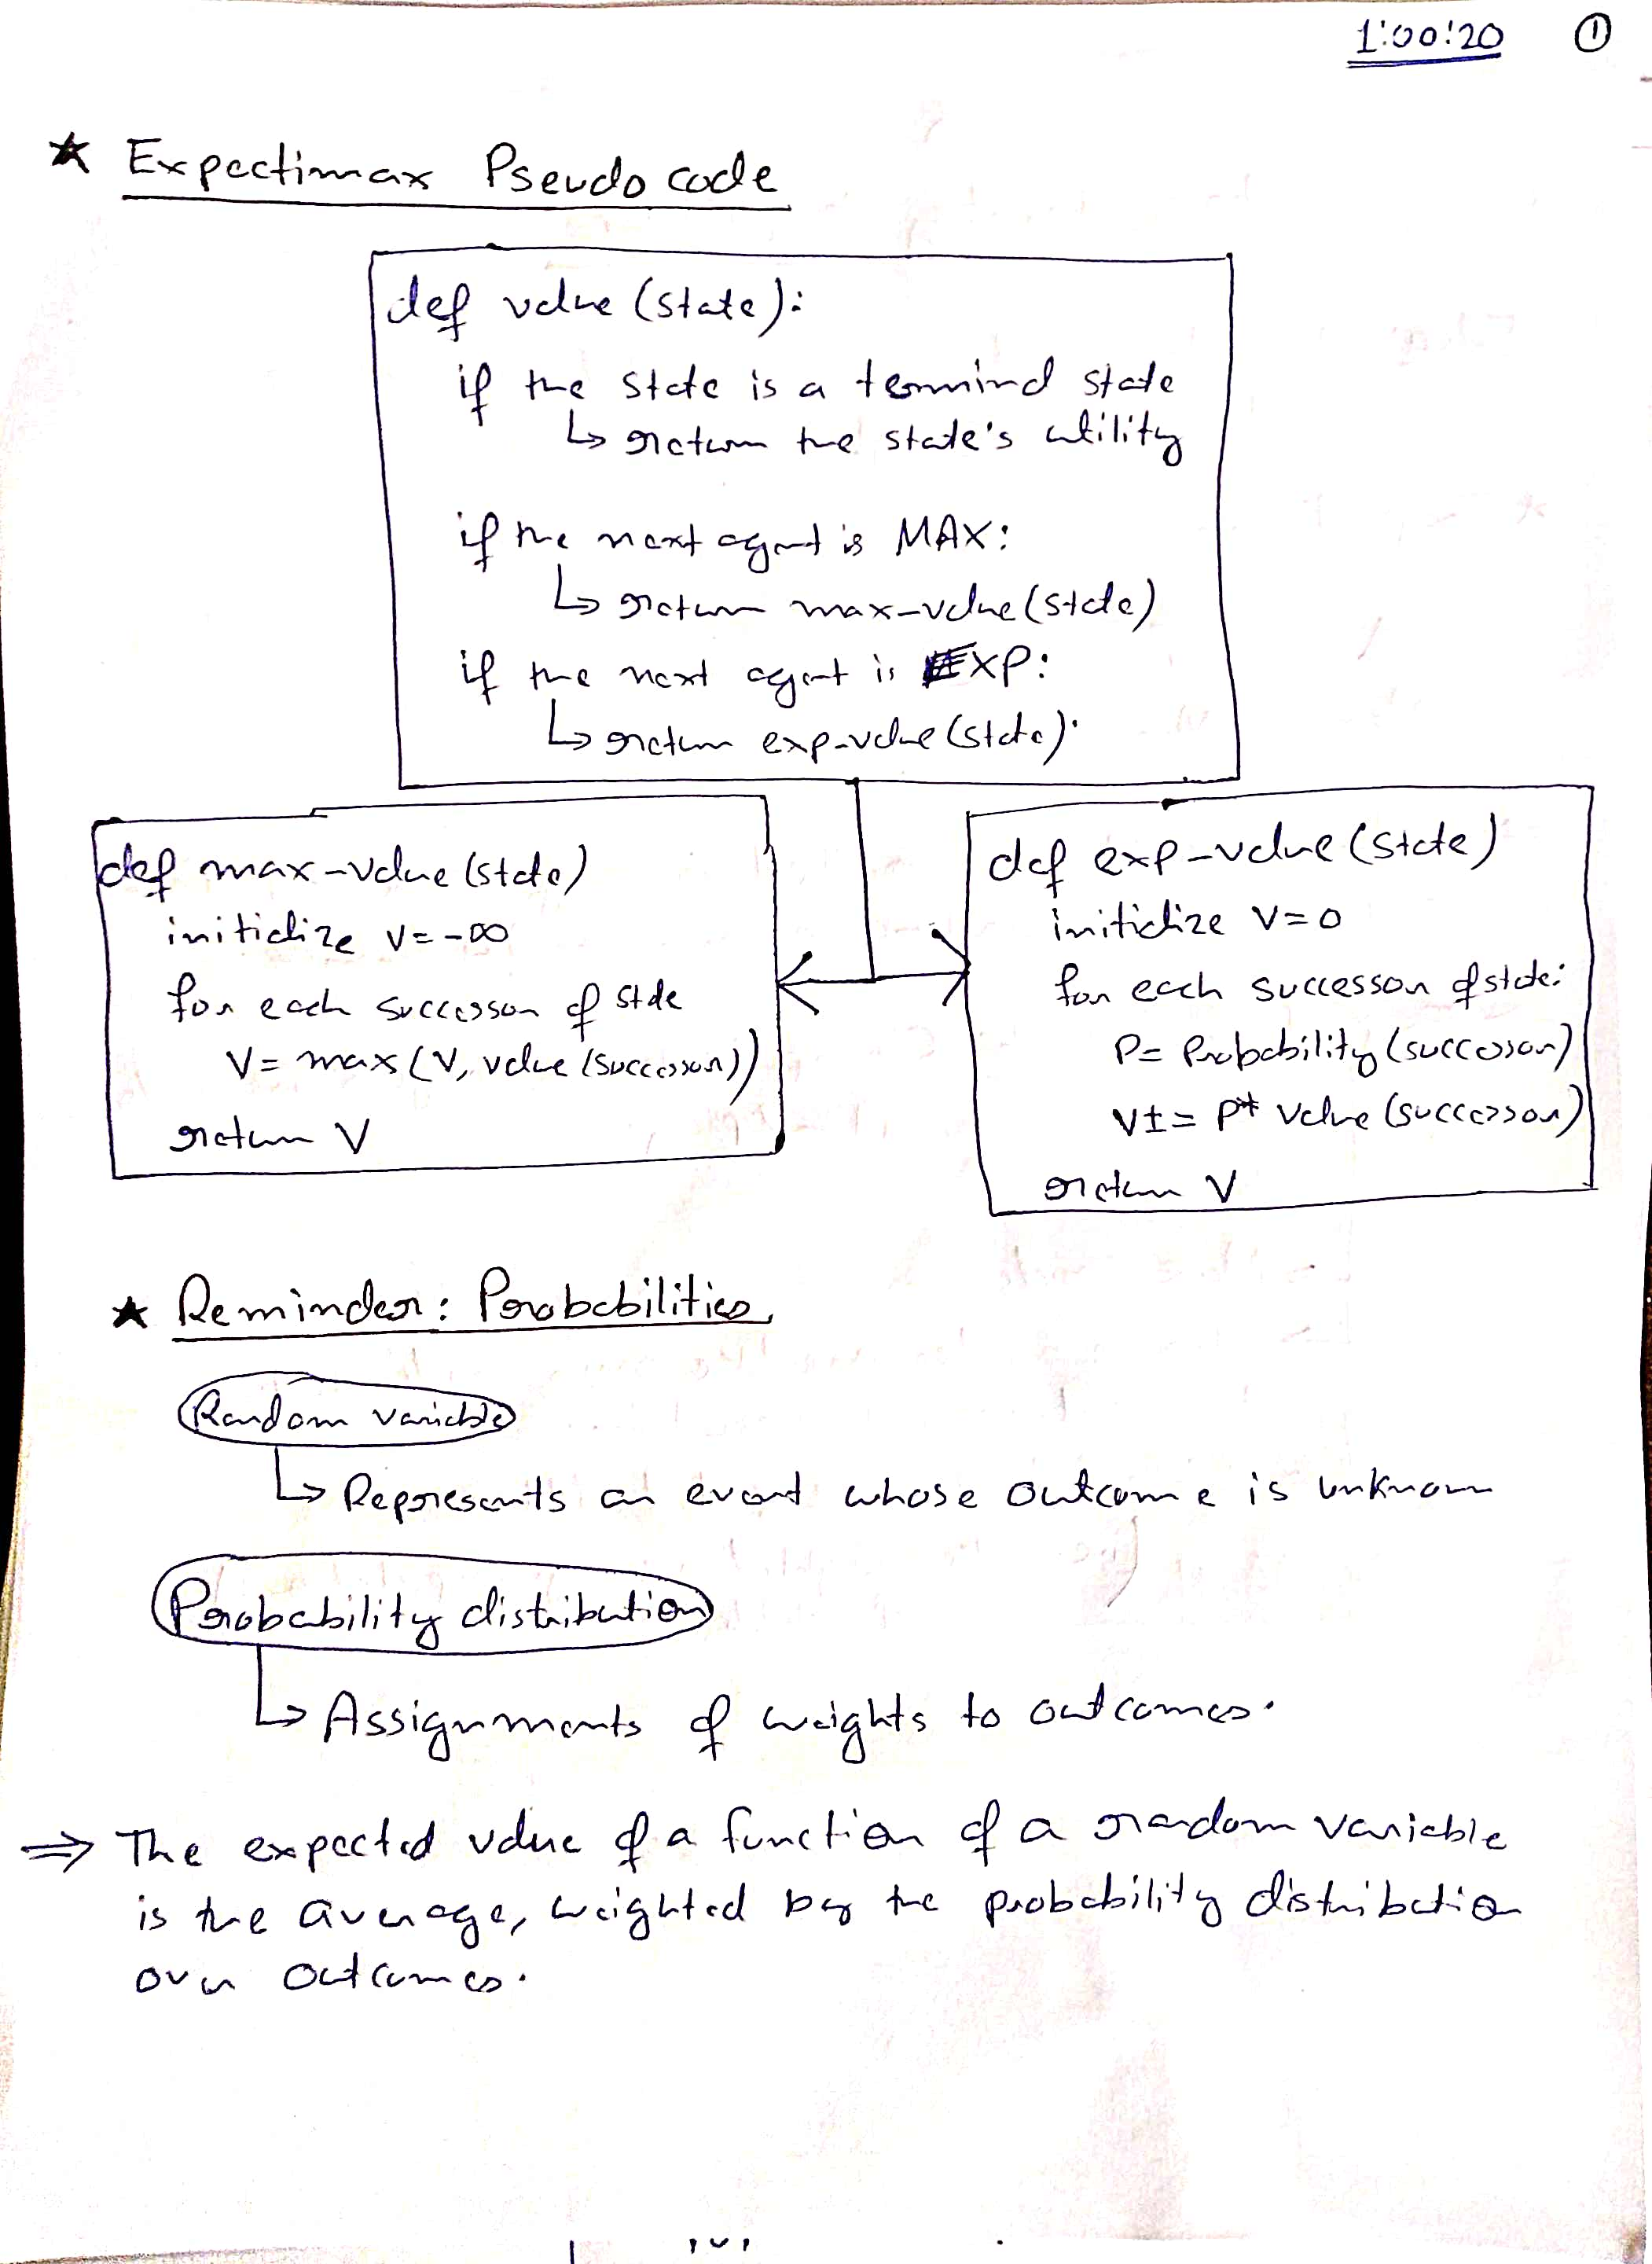 1:00:20 ①
★ Expectimax Pseudo code
def value (state):
if the state is a terminal state
↳ return the state's utility
if the next agent is MAX:
↳ return max-value (state)
if the next agent is EXP:
↳ return exp-value (state).
def max-value (state)
initialize v = -∞
for each successor of state
V = max (V, value (successor))
return V
def exp-value (state)
initialize V = 0
for each successor of state:
P = Probability (successor)
V ±= P * Value (successor)
return V
★ Reminder: Probabilities.
Random variable
↳ Represents an event whose outcome is unknown
Probability distribution
↳ Assignments of weights to outcomes.
⇒ The expected value of a function of a random variable
is the average, weighted by the probability distribution
over outcomes.